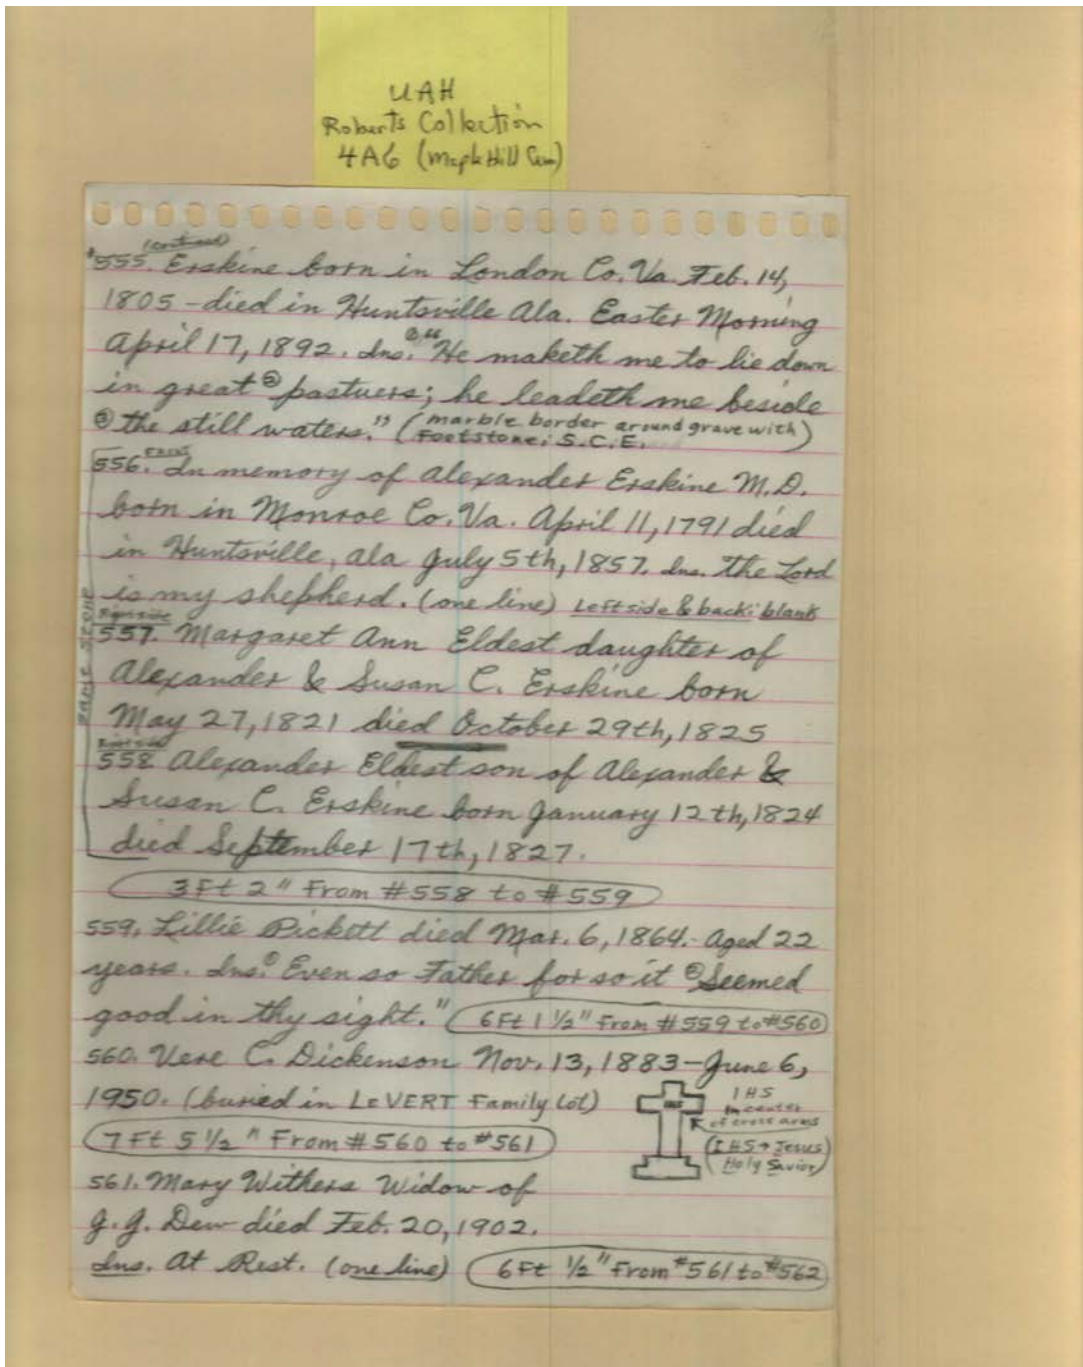 UAH
Roberts Collection
4A6 (Maple Hill Cem)
(continued)
#555. Erskine born in London Co. Va. Feb. 14,
1805 - died in Huntsville Ala. Easter Morning
April 17, 1892. Ins. ① "He maketh me to lie down
in great ② pastuers; he leadeth me beside
③ the still waters." (marble border around grave with
Footstone: S.C.E.)
556. Front In memory of Alexander Erskine M.D.
born in Monroe Co. Va. April 11, 1791 died
in Huntsville, Ala July 5th, 1857. Ins. The Lord
is my shepherd. (one line) Left side & back: blank
Right side
557. Margaret Ann Eldest daughter of
Alexander & Susan C. Erskine born
May 27, 1821 died October 29th, 1825
Right side
558 Alexander Eldest son of Alexander &
Susan C. Erskine born January 12th, 1824
died September 17th, 1827.
SAME STONE
3Ft 2" From #558 to #559
559. Lillie Pickett died Mar. 6, 1864. Aged 22
years. Ins. ① Even so Father for so it ② Seemed
good in thy sight." 6Ft 1 1/2" From #559 to #560
560. Vere C. Dickenson Nov. 13, 1883 - June 6,
1950. (buried in LeVERT Family Lot)
IHS
in center
of cross arms
(IHS → Jesus
Holy Savior)
7Ft 5 1/2" From #560 to #561
561. Mary Withers Widow of
J. J. Dew died Feb. 20, 1902.
Ins. At Rest. (one line) 6Ft 1/2" From #561 to #562